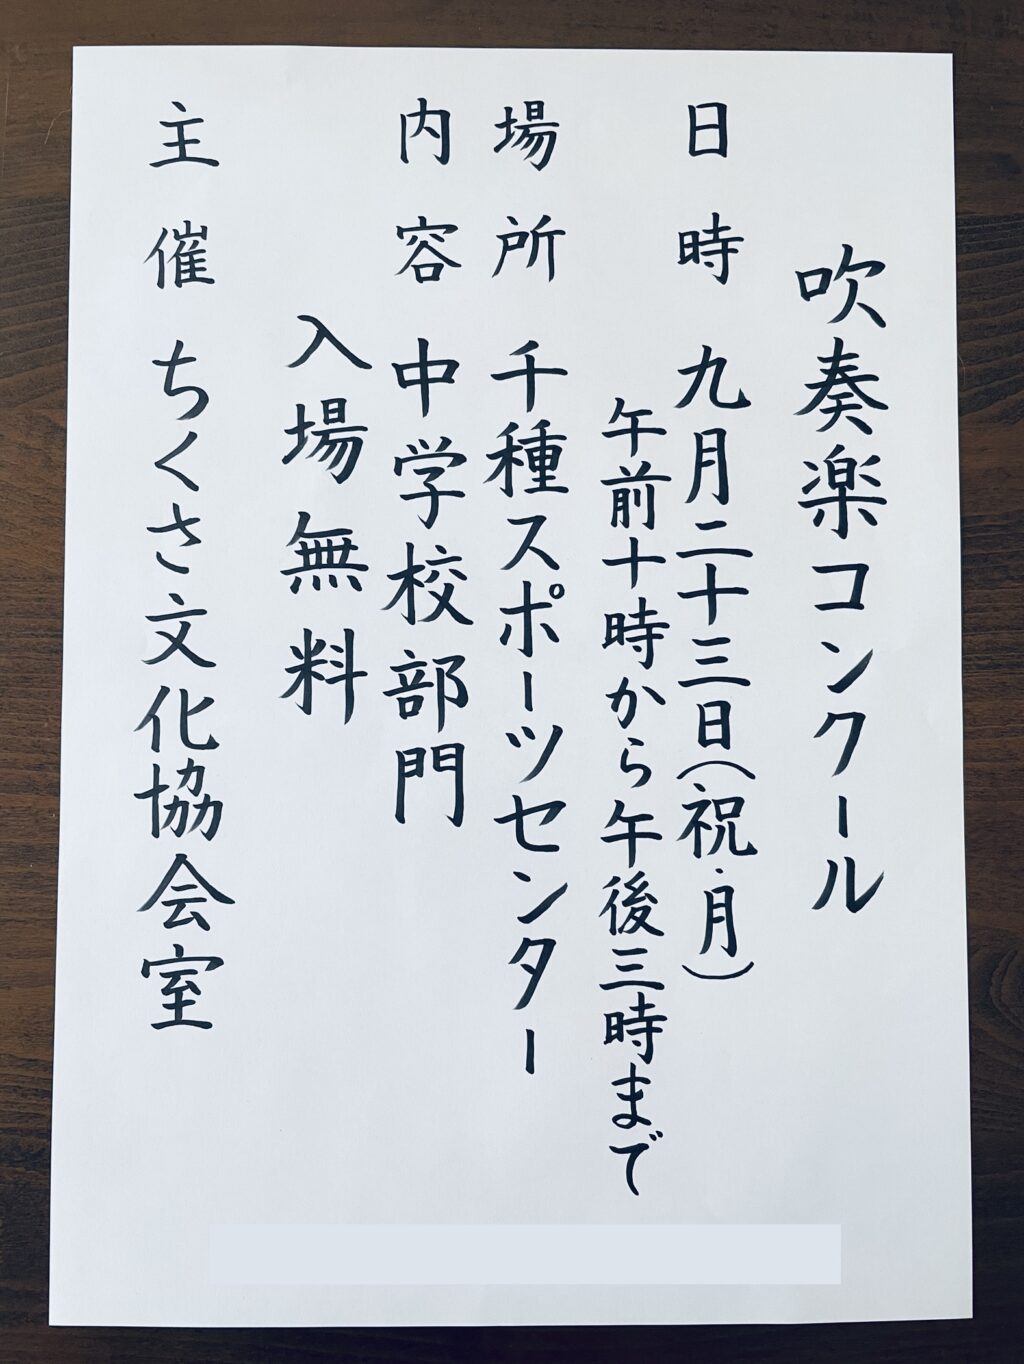 吹奏楽コンクール
日時 九月二十三日(祝・月)
午前十時から午後三時まで
場所 千種スポーツセンター
内容 中学校部門
入場無料
主催 ちくさ文化協会室